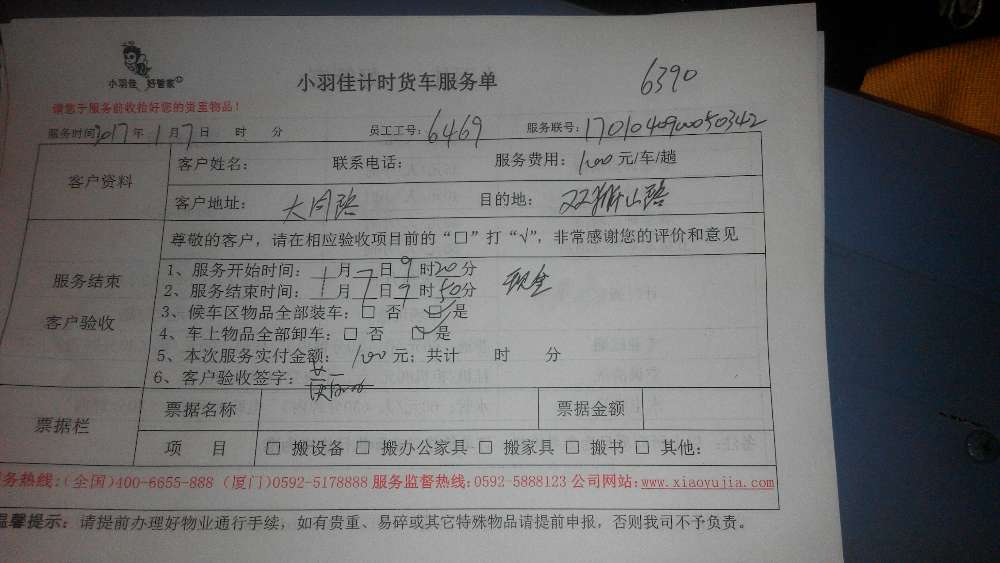 小羽佳 好管家
小羽佳计时货车服务单
6390
请您于服务前收拾好您的贵重物品!
服务时间2017年1月7日 时 分 员工工号:6469 服务联号:1701040900050342
客户资料
客户姓名: 联系电话: 服务费用:100元/车/趟
客户地址: 大同路 目的地: 双狮山路
服务结束
客户验收
尊敬的客户,请在相应验收项目前的“□”打“√”,非常感谢您的评价和意见
1、服务开始时间:1月7日9时20分 现金
2、服务结束时间:1月7日9时50分
3、候车区物品全部装车:□ 否 ☑是
4、车上物品全部卸车:□ 否 ☑是
5、本次服务实付金额:100元;共计 时 分
6、客户验收签字:
票据栏
票据名称 票据金额
项 目 □ 搬设备 □ 搬办公家具 □ 搬家具 □ 搬书 □ 其他:
务热线:(全国)400-6655-888 (厦门)0592-5178888 服务监督热线:0592-5888123 公司网站:www.xiaoyujia.com
温馨提示:请提前办理好物业通行手续,如有贵重、易碎或其它特殊物品请提前申报,否则我司不予负责。